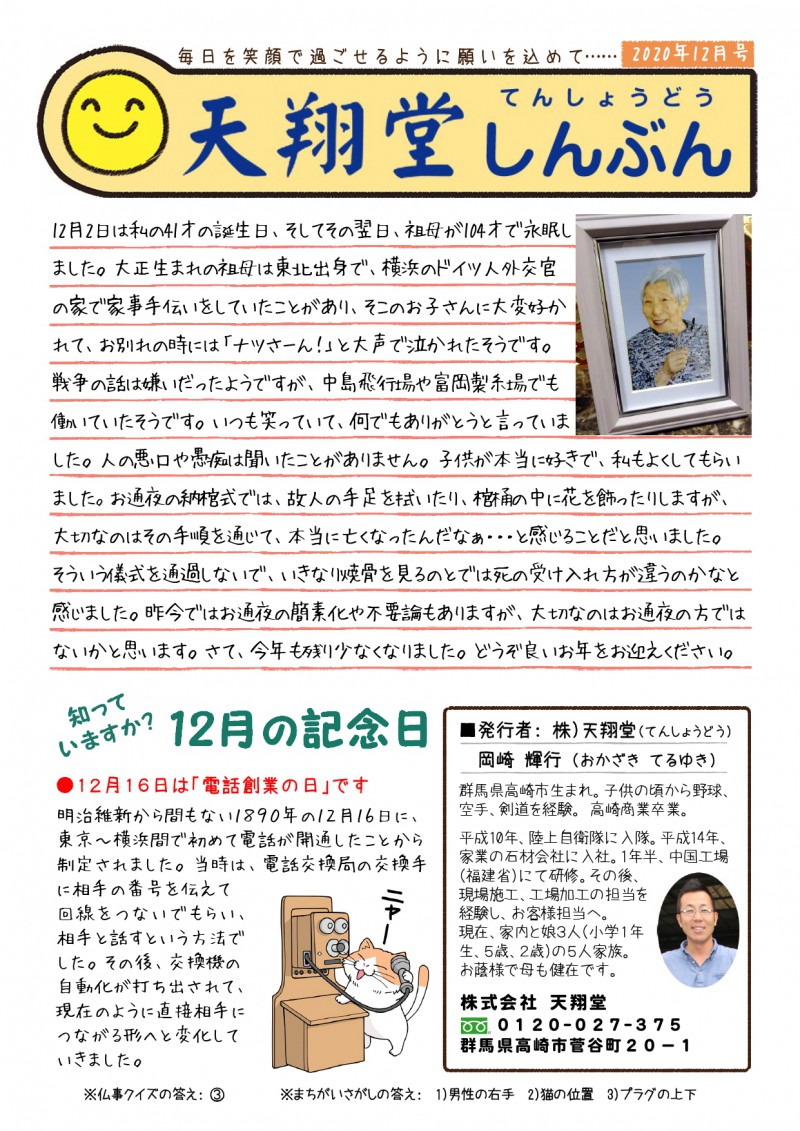 毎日を笑顔で過ごせるように願いを込めて……
2020年12月号
てんしょうどう
天翔堂しんぶん
12月2日は私の41才の誕生日、そしてその翌日、祖母が104才で永眠し
ました。大正生まれの祖母は東北出身で、横浜のドイツ人外交官
の家で家事手伝いをしていたことがあり、そこのお子さんに大変好か
れて、お別れの時には「ナツさーん!」と大声で泣かれたそうです。
戦争の話は嫌いだったようですが、中島飛行場や富岡製糸場でも
働いていたそうです。いつも笑っていて、何でもありがとうと言っていま
した。人の悪口や愚痴は聞いたことがありません。子供が本当に好きで、私もよくしてもらい
ました。お通夜の納棺式では、故人の手足を拭いたり、棺桶の中に花を飾ったりしますが、
大切なのはその手順を通じて、本当に亡くなったんだなぁ・・・と感じることだと思いました。
そういう儀式を通過しないで、いきなり焼骨を見るのとでは死の受け入れ方が違うのかなと
感じました。昨今ではお通夜の簡素化や不要論もありますが、大切なのはお通夜の方では
ないかと思います。さて、今年も残り少なくなりました。どうぞ良いお年をお迎えください。
知って
いますか?
12月の記念日
●12月16日は「電話創業の日」です
明治維新から間もない1890年の12月16日に、
東京～横浜間で初めて電話が開通したことから
制定されました。当時は、電話交換局の交換手
に相手の番号を伝えて
回線をつないでもらい、
相手と話すという方法で
した。その後、交換機の
自動化が打ち出されて、
現在のように直接相手に
つながる形へと変化して
いきました。
ニャー
■発行者: 株)天翔堂(てんしょうどう)
岡崎 輝行 (おかざき てるゆき)
群馬県高崎市生まれ。子供の頃から野球、
空手、剣道を経験。 高崎商業卒業。
平成10年、陸上自衛隊に入隊。平成14年、
家業の石材会社に入社。1年半、中国工場
(福建省)にて研修。その後、
現場施工、工場加工の担当を
経験し、お客様担当へ。
現在、家内と娘3人(小学1年
生、5歳、2歳)の5人家族。
お蔭様で母も健在です。
株式会社 天翔堂
0120-027-375
群馬県高崎市菅谷町20-1
※仏事クイズの答え: ③
※まちがいさがしの答え: 1)男性の右手 2)猫の位置 3)プラグの上下